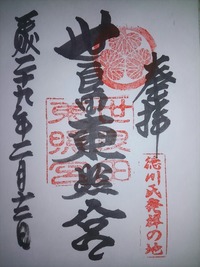 奉拝
徳川氏発祥の地
世良田東照宮
世良田
東照宮
平成二十九年二月十二日